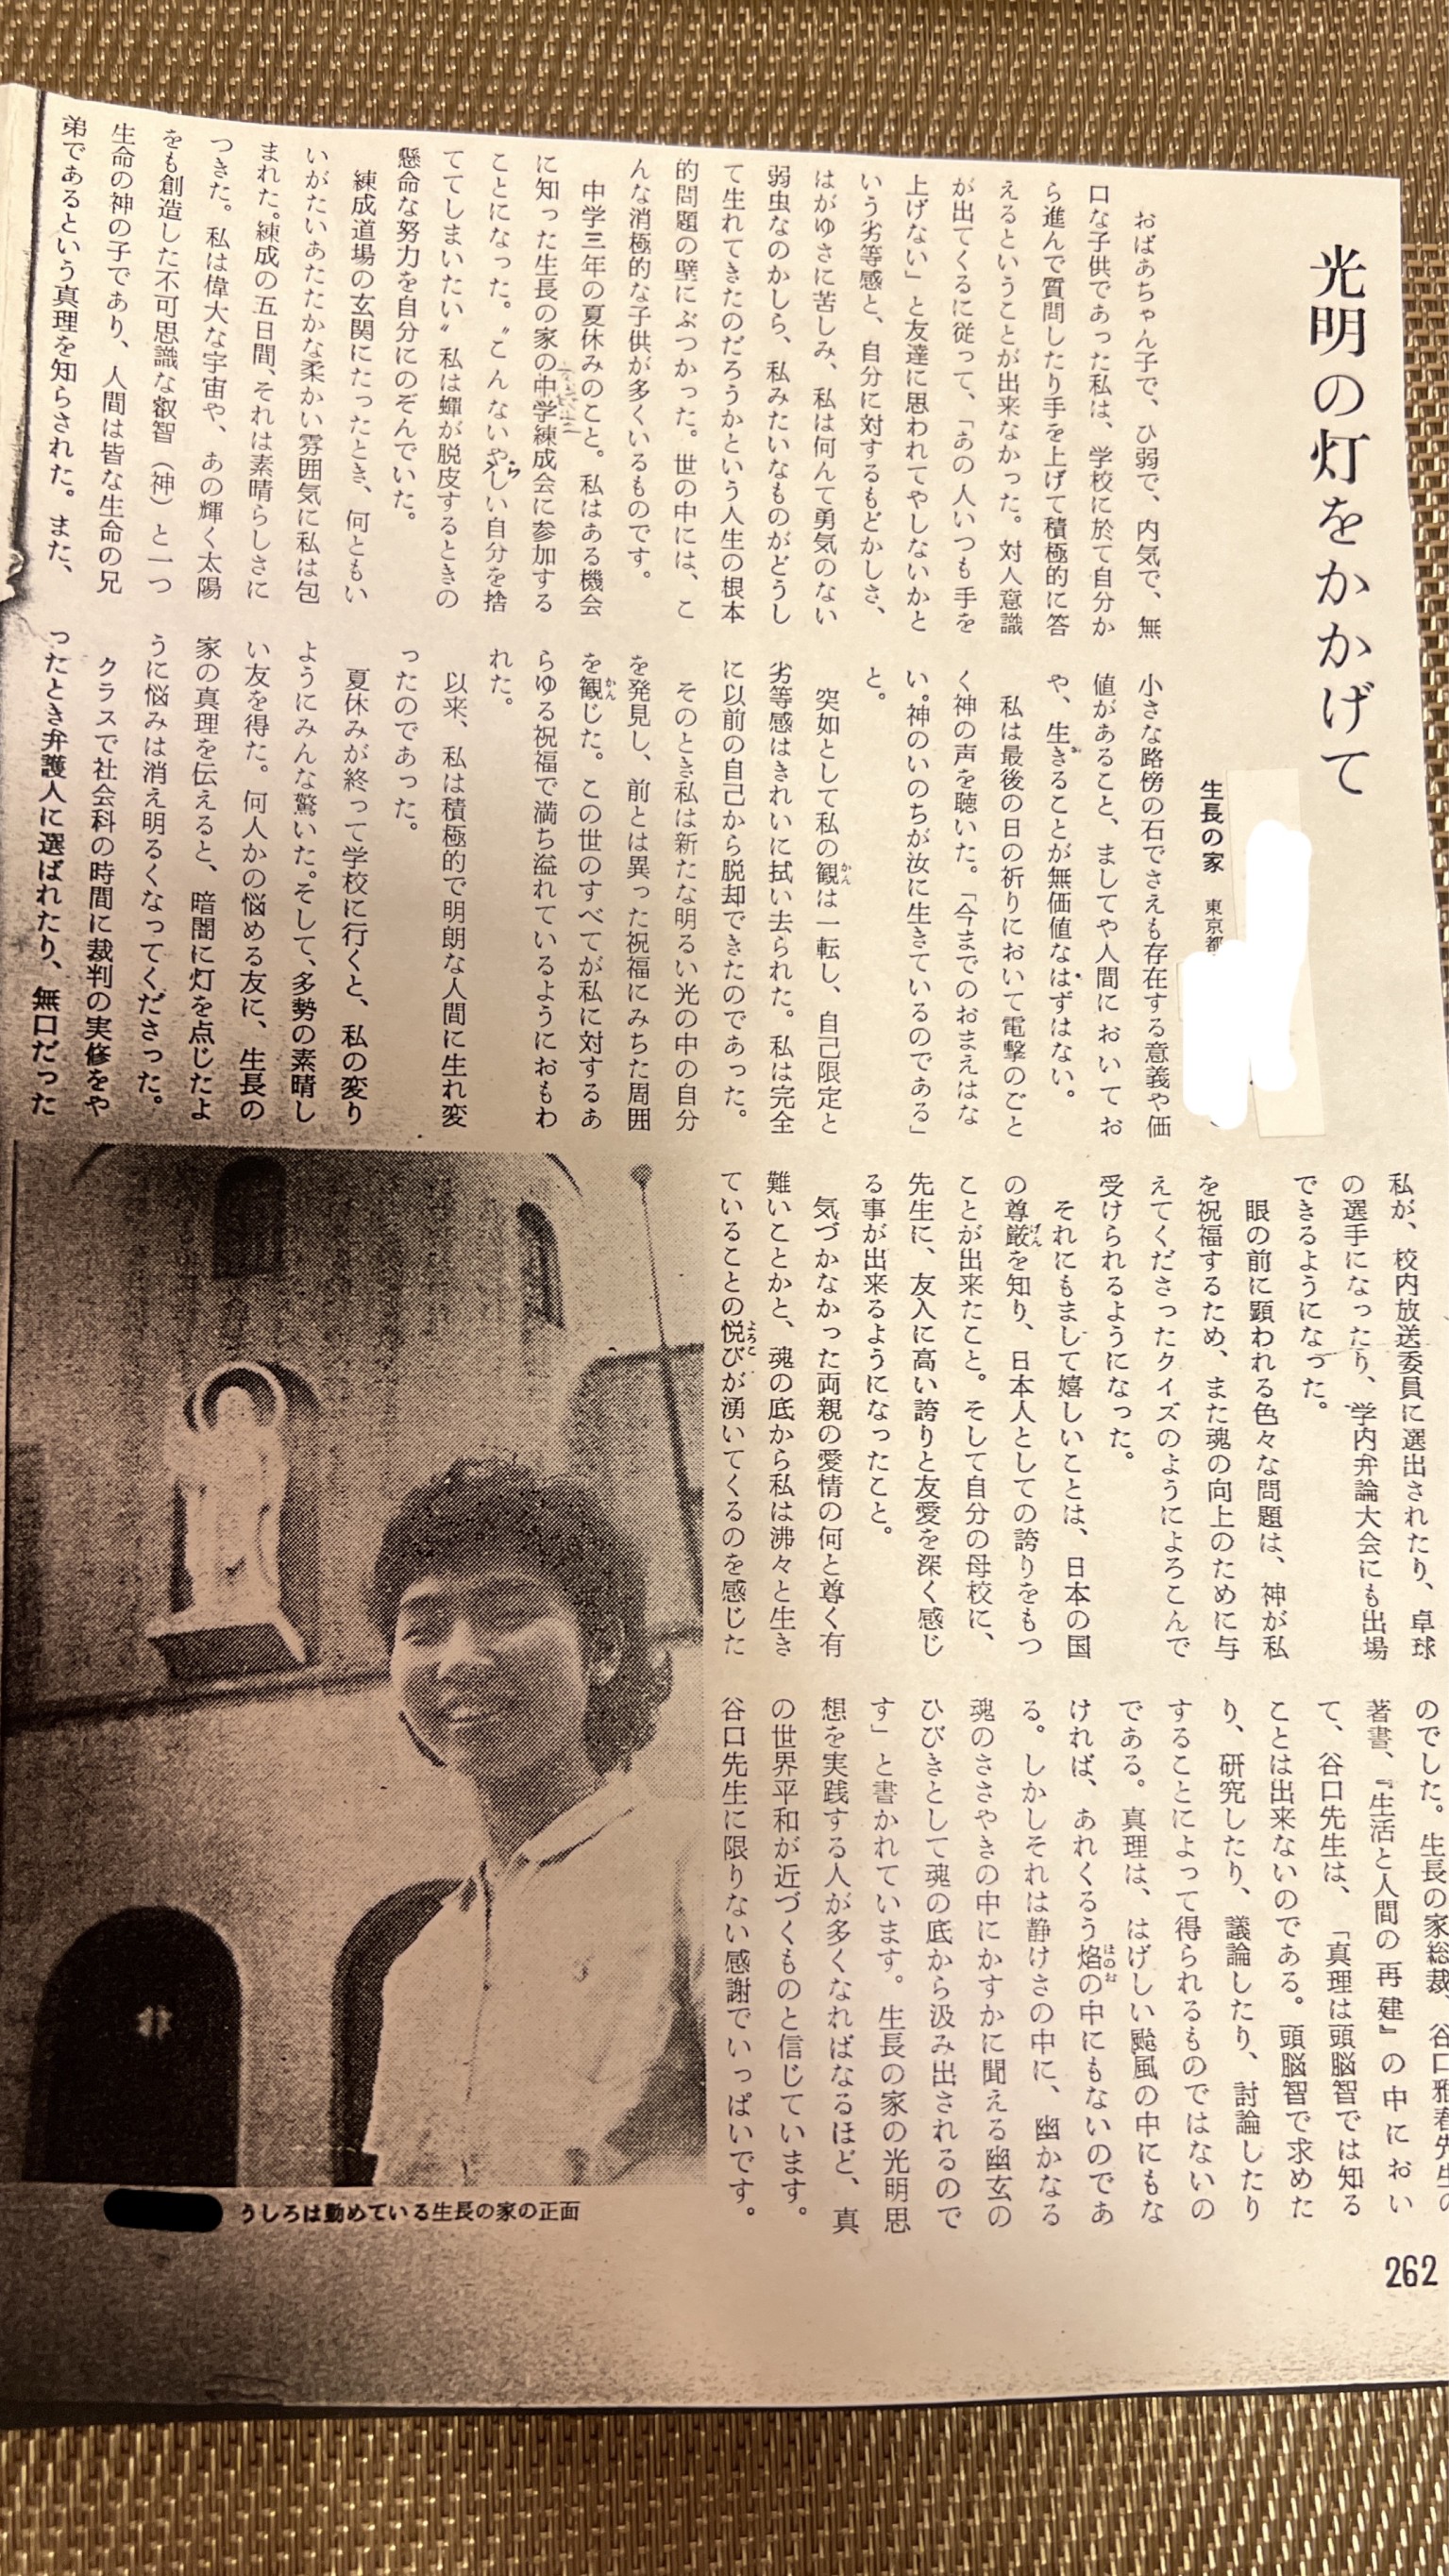 光明の灯をかかげて
生長の家　東京都
おばあちゃん子で、ひ弱で、内気で、無
口な子供であった私は、学校に於て自分か
ら進んで質問したり手を上げて積極的に答
えるということが出来なかった。対人意識
が出てくるに従って、「あの人いつも手を
上げない」と友達に思われてやしないかと
いう劣等感と、自分に対するもどかしさ、
はがゆさに苦しみ、私は何んて勇気のない
弱虫なのかしら、私みたいなものがどうし
て生れてきたのだろうかという人生の根本
的問題の壁にぶつかった。世の中には、こ
んな消極的な子供が多くいるものです。
中学三年の夏休みのこと。私はある機会
に知った生長の家の中学練成会に参加する
ことになった。〝こんないやらしい自分を捨
ててしまいたい〟私は蟬が脱皮するときの
懸命な努力を自分にのぞんでいた。
練成道場の玄関にたったとき、何ともい
いがたいあたたかな柔かい雰囲気に私は包
まれた。練成の五日間、それは素晴らしさに
つきた。私は偉大な宇宙や、あの輝く太陽
をも創造した不可思議な叡智（神）と一つ
生命の神の子であり、人間は皆な生命の兄
弟であるという真理を知らされた。また、
小さな路傍の石でさえも存在する意義や価
値があること、ましてや人間においてお
や、生きることが無価値なはずはない。
私は最後の日の祈りにおいて電撃のごと
く神の声を聴いた。「今までのおまえはな
い。神のいのちが汝に生きているのである」
と。
突如として私の観は一転し、自己限定と
劣等感はきれいに拭い去られた。私は完全
に以前の自己から脱却できたのであった。
そのとき私は新たな明るい光の中の自分
を発見し、前とは異った祝福にみちた周囲
を観じた。この世のすべてが私に対するあ
らゆる祝福で満ち溢れているようにおもわ
れた。
以来、私は積極的で明朗な人間に生れ変
ったのであった。
夏休みが終って学校に行くと、私の変り
ようにみんな驚いた。そして、多勢の素晴し
い友を得た。何人かの悩める友に、生長の
家の真理を伝えると、暗闇に灯を点じたよ
うに悩みは消え明るくなってくださった。
クラスで社会科の時間に裁判の実修をや
ったとき弁護人に選ばれたり、無口だった
私が、校内放送委員に選出されたり、卓球
の選手になったり、学内弁論大会にも出場
できるようになった。
眼の前に顕われる色々な問題は、神が私
を祝福するため、また魂の向上のために与
えてくださったクイズのようによろこんで
受けられるようになった。
それにもまして嬉しいことは、日本の国
の尊厳を知り、日本人としての誇りをもつ
ことが出来たこと。そして自分の母校に、
先生に、友人に高い誇りと友愛を深く感じ
る事が出来るようになったこと。
気づかなかった両親の愛情の何と尊く有
難いことかと、魂の底から私は沸々と生き
ていることの悦びが湧いてくるのを感じた
のでした。生長の家総裁、谷口雅春先生の
著書、『生活と人間の再建』の中におい
て、谷口先生は、「真理は頭脳智では知る
ことは出来ないのである。頭脳智で求めた
り、研究したり、議論したり、討論したり
することによって得られるものではないの
である。真理は、はげしい颱風の中にもな
ければ、あれくるう焔の中にもないのであ
る。しかしそれは静けさの中に、幽かなる
魂のささやきの中にかすかに聞える幽玄の
ひびきとして魂の底から汲み出されるので
す」と書かれています。生長の家の光明思
想を実践する人が多くなればなるほど、真
の世界平和が近づくものと信じています。
谷口先生に限りない感謝でいっぱいです。
うしろは勤めている生長の家の正面
262